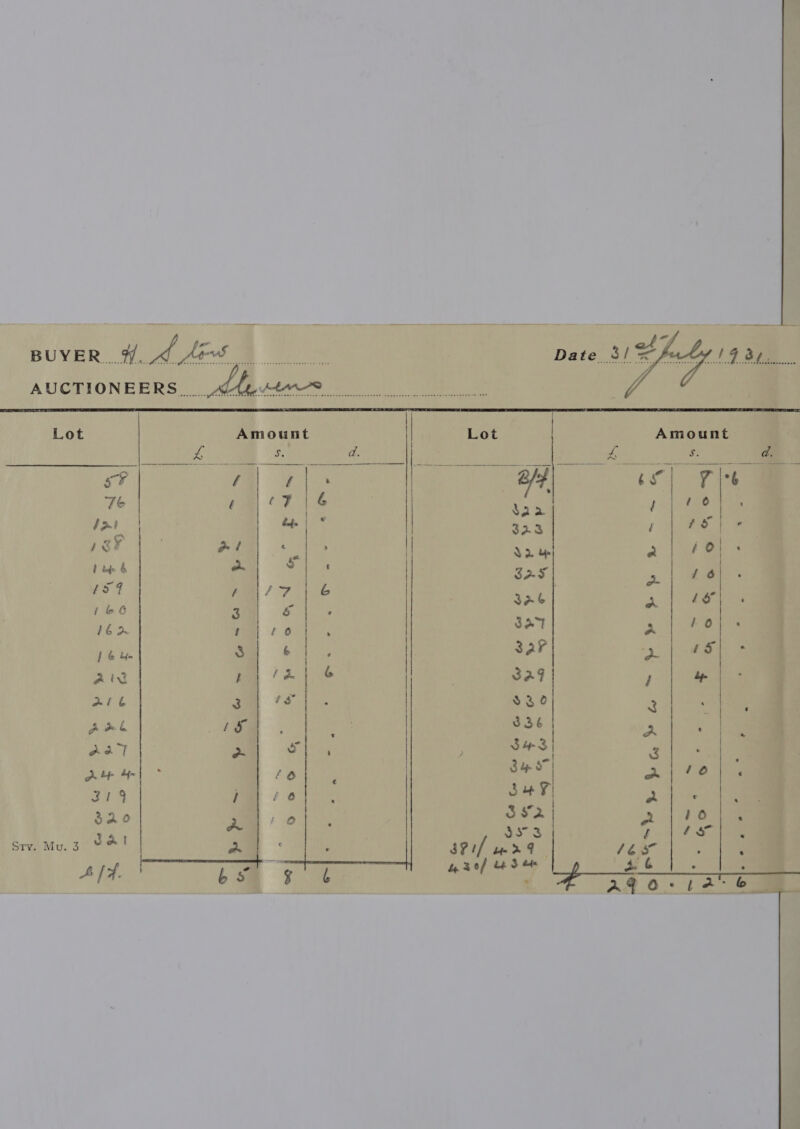 BUYER H. Date 31st July 1931
AUCTIONEERS Stevens
Lot Amount Lot Amount
£ s. d. £ s. d.
58 1 1 . B/F 65 8 . 6
76 1 17 6 322 1 10 .
121 4 . 323 1 15 .
138 21 . . 324 2 10 .
146 2 5 . 325 2 10 .
159 1 17 6 326 2 15 .
160 3 5 . 327 2 10 .
162 1 10 . 328 2 15 .
164 3 6 . 329 1 4 .
213 1 12 6 330 3 . .
216 3 15 . 336 2 . .
226 15 . . 343 3 . .
227 2 5 . 345 2 10 .
244 . 10 . 348 2 . .
319 1 10 . 352 2 10 .
320 2 10 . 353 1 15 .
Srv. Mu. 3 321 2 . . 381/429 165 . .
65 8 6 430/434 26 . .
£ 290 . 12 . 6